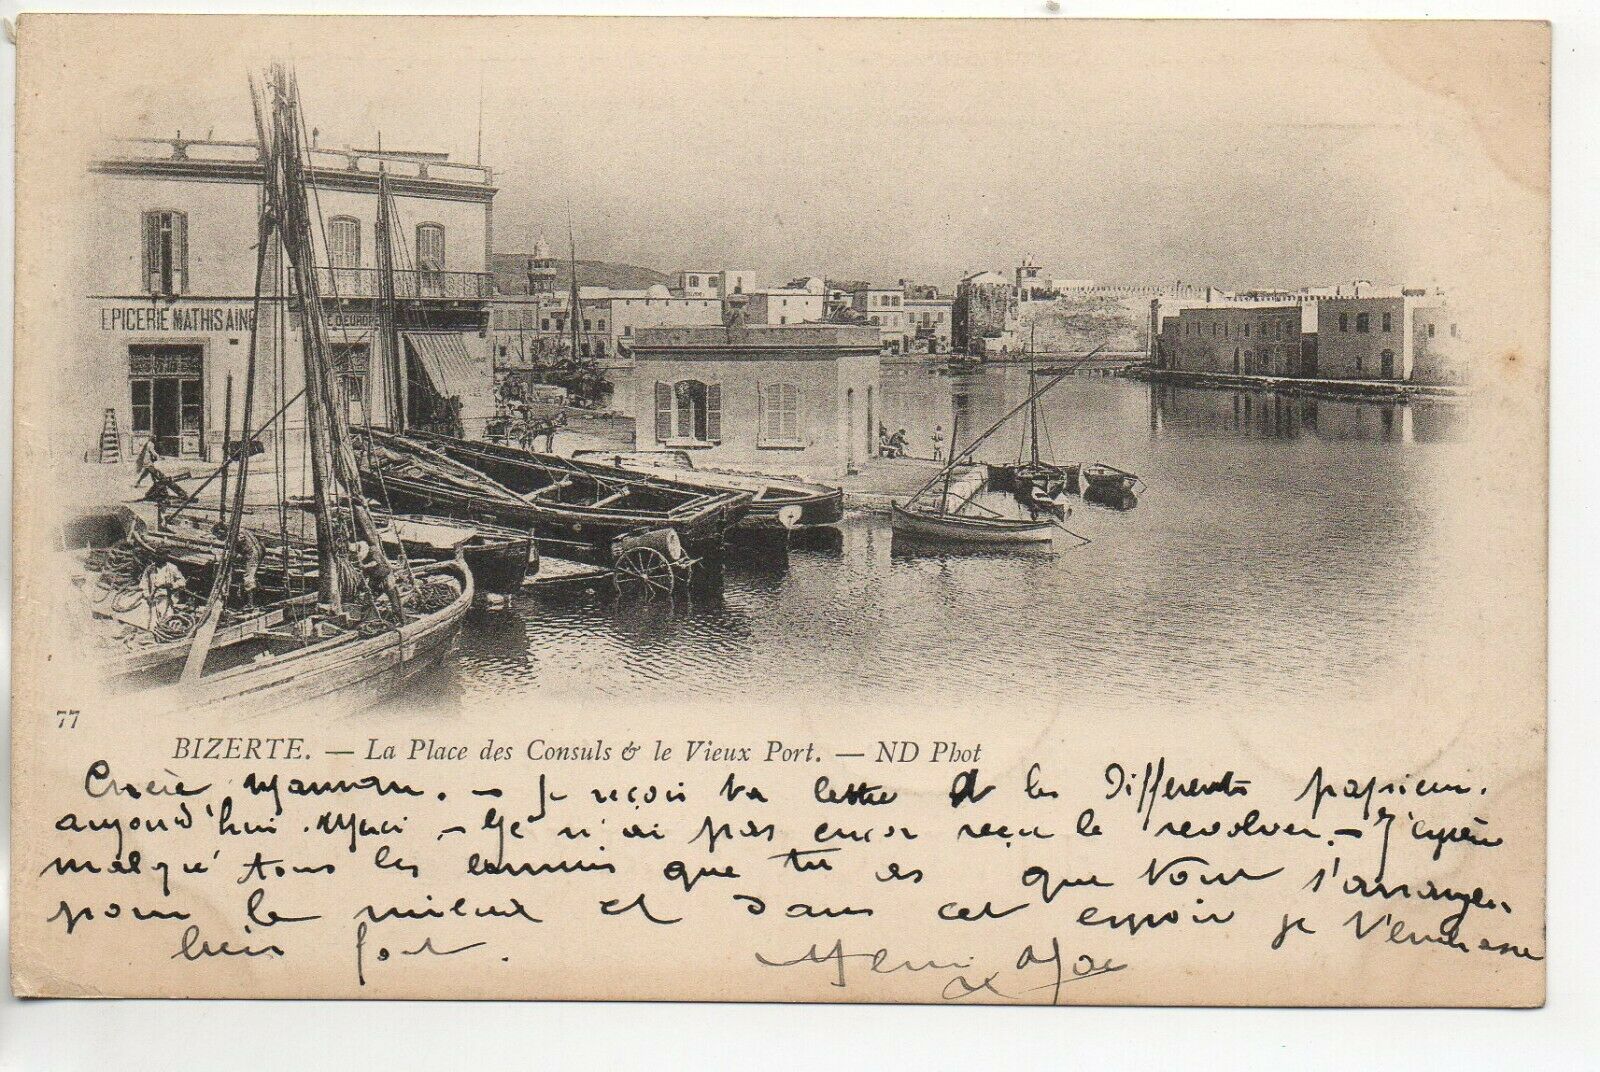 EPICERIE MATHIS AINÉ
D'EUROPE
77
BIZERTE. — La Place des Consuls & le Vieux Port. — ND Phot
Chère Maman. — Je reçois ta lettre et les Différents papiers.
aujourd'hui. Merci — Je n'ai pas encor reçu le revolver. — J'espère
malgré tous les ennuis que tu as que tout s'arrangera
pour le mieux et dans cet espoir je t'embrasse
bien fort.
Henri